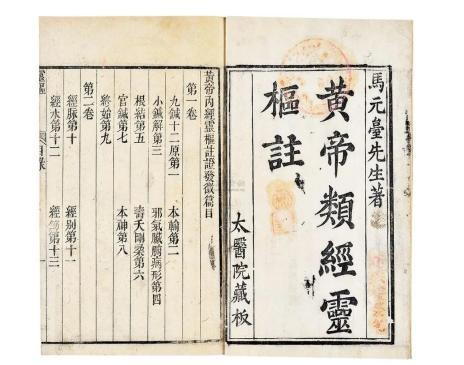 馬元臺先生著
黃帝類經靈
樞註
太醫院藏板
黃帝內經靈樞註證發微篇目
第一卷
九鍼十二原第一 本輸第二
小鍼解第三 邪氣臟腑病形第四
根結第五 壽夭剛柔第六
官鍼第七 本神第八
終始第九
第二卷
經脉第十 經別第十一
經水第十二 經筋第十三